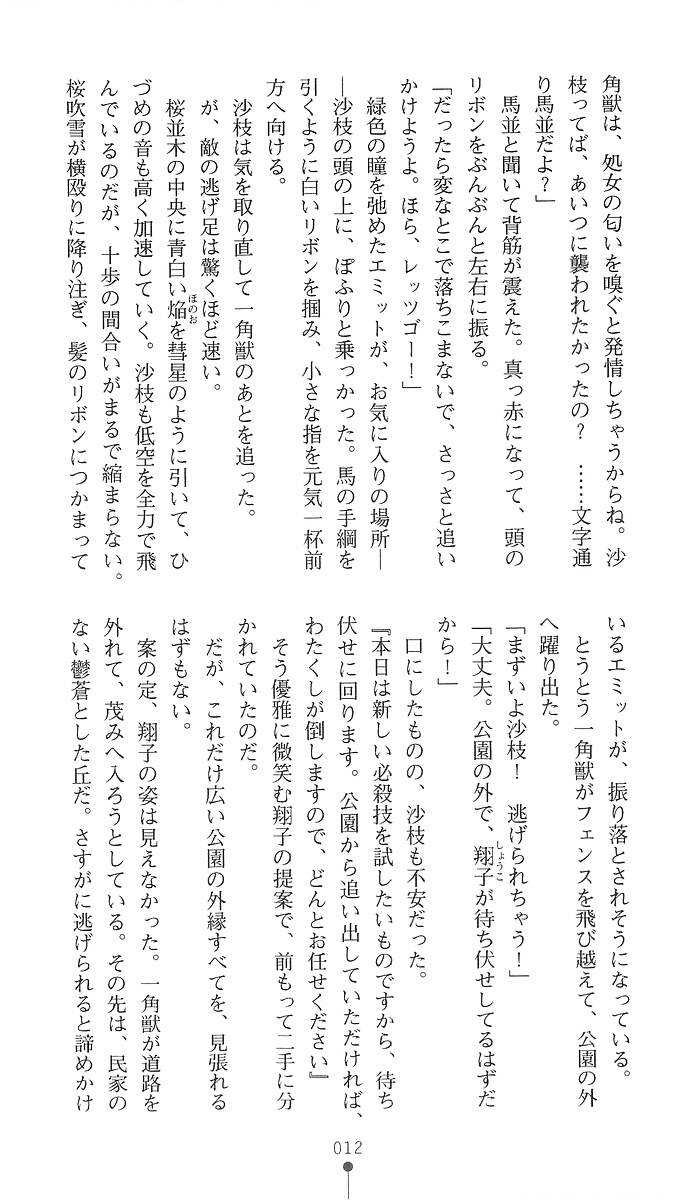 角獣は、処女の匂いを嗅ぐと発情しちゃうからね。沙
枝ってば、あいつに襲われたかったの？　……文字通
り馬並だよ？」
　馬並と聞いて背筋が震えた。真っ赤になって、頭の
リボンをぶんぶんと左右に振る。
「だったら変なとこで落ちこまないで、さっさと追い
かけようよ。ほら、レッツゴー！」
　緑色の瞳を弛めたエミットが、お気に入りの場所―
―沙枝の頭の上に、ぽふりと乗っかった。馬の手綱を
引くように白いリボンを掴み、小さな指を元気一杯前
方へ向ける。
　沙枝は気を取り直して一角獣のあとを追った。
　が、敵の逃げ足は驚くほど速い。
　桜並木の中央に青白い焔を彗星のように引いて、ひ
ほのお
づめの音も高く加速していく。沙枝も低空を全力で飛
んでいるのだが、十歩の間合いがまるで縮まらない。
桜吹雪が横殴りに降り注ぎ、髪のリボンにつかまって
いるエミットが、振り落とされそうになっている。
　とうとう一角獣がフェンスを飛び越えて、公園の外
へ躍り出た。
「まずいよ沙枝！　逃げられちゃう！」
「大丈夫。公園の外で、翔子が待ち伏せしてるはずだ
しょうこ
から！」
　口にしたものの、沙枝も不安だった。
『本日は新しい必殺技を試したいものですから、待ち
伏せに回ります。公園から追い出していただければ、
わたくしが倒しますので、どんとお任せください』
　そう優雅に微笑む翔子の提案で、前もって二手に分
かれていたのだ。
　だが、これだけ広い公園の外縁すべてを、見張れる
はずもない。
　案の定、翔子の姿は見えなかった。一角獣が道路を
外れて、茂みへ入ろうとしている。その先は、民家の
ない鬱蒼とした丘だ。さすがに逃げられると諦めかけ
012